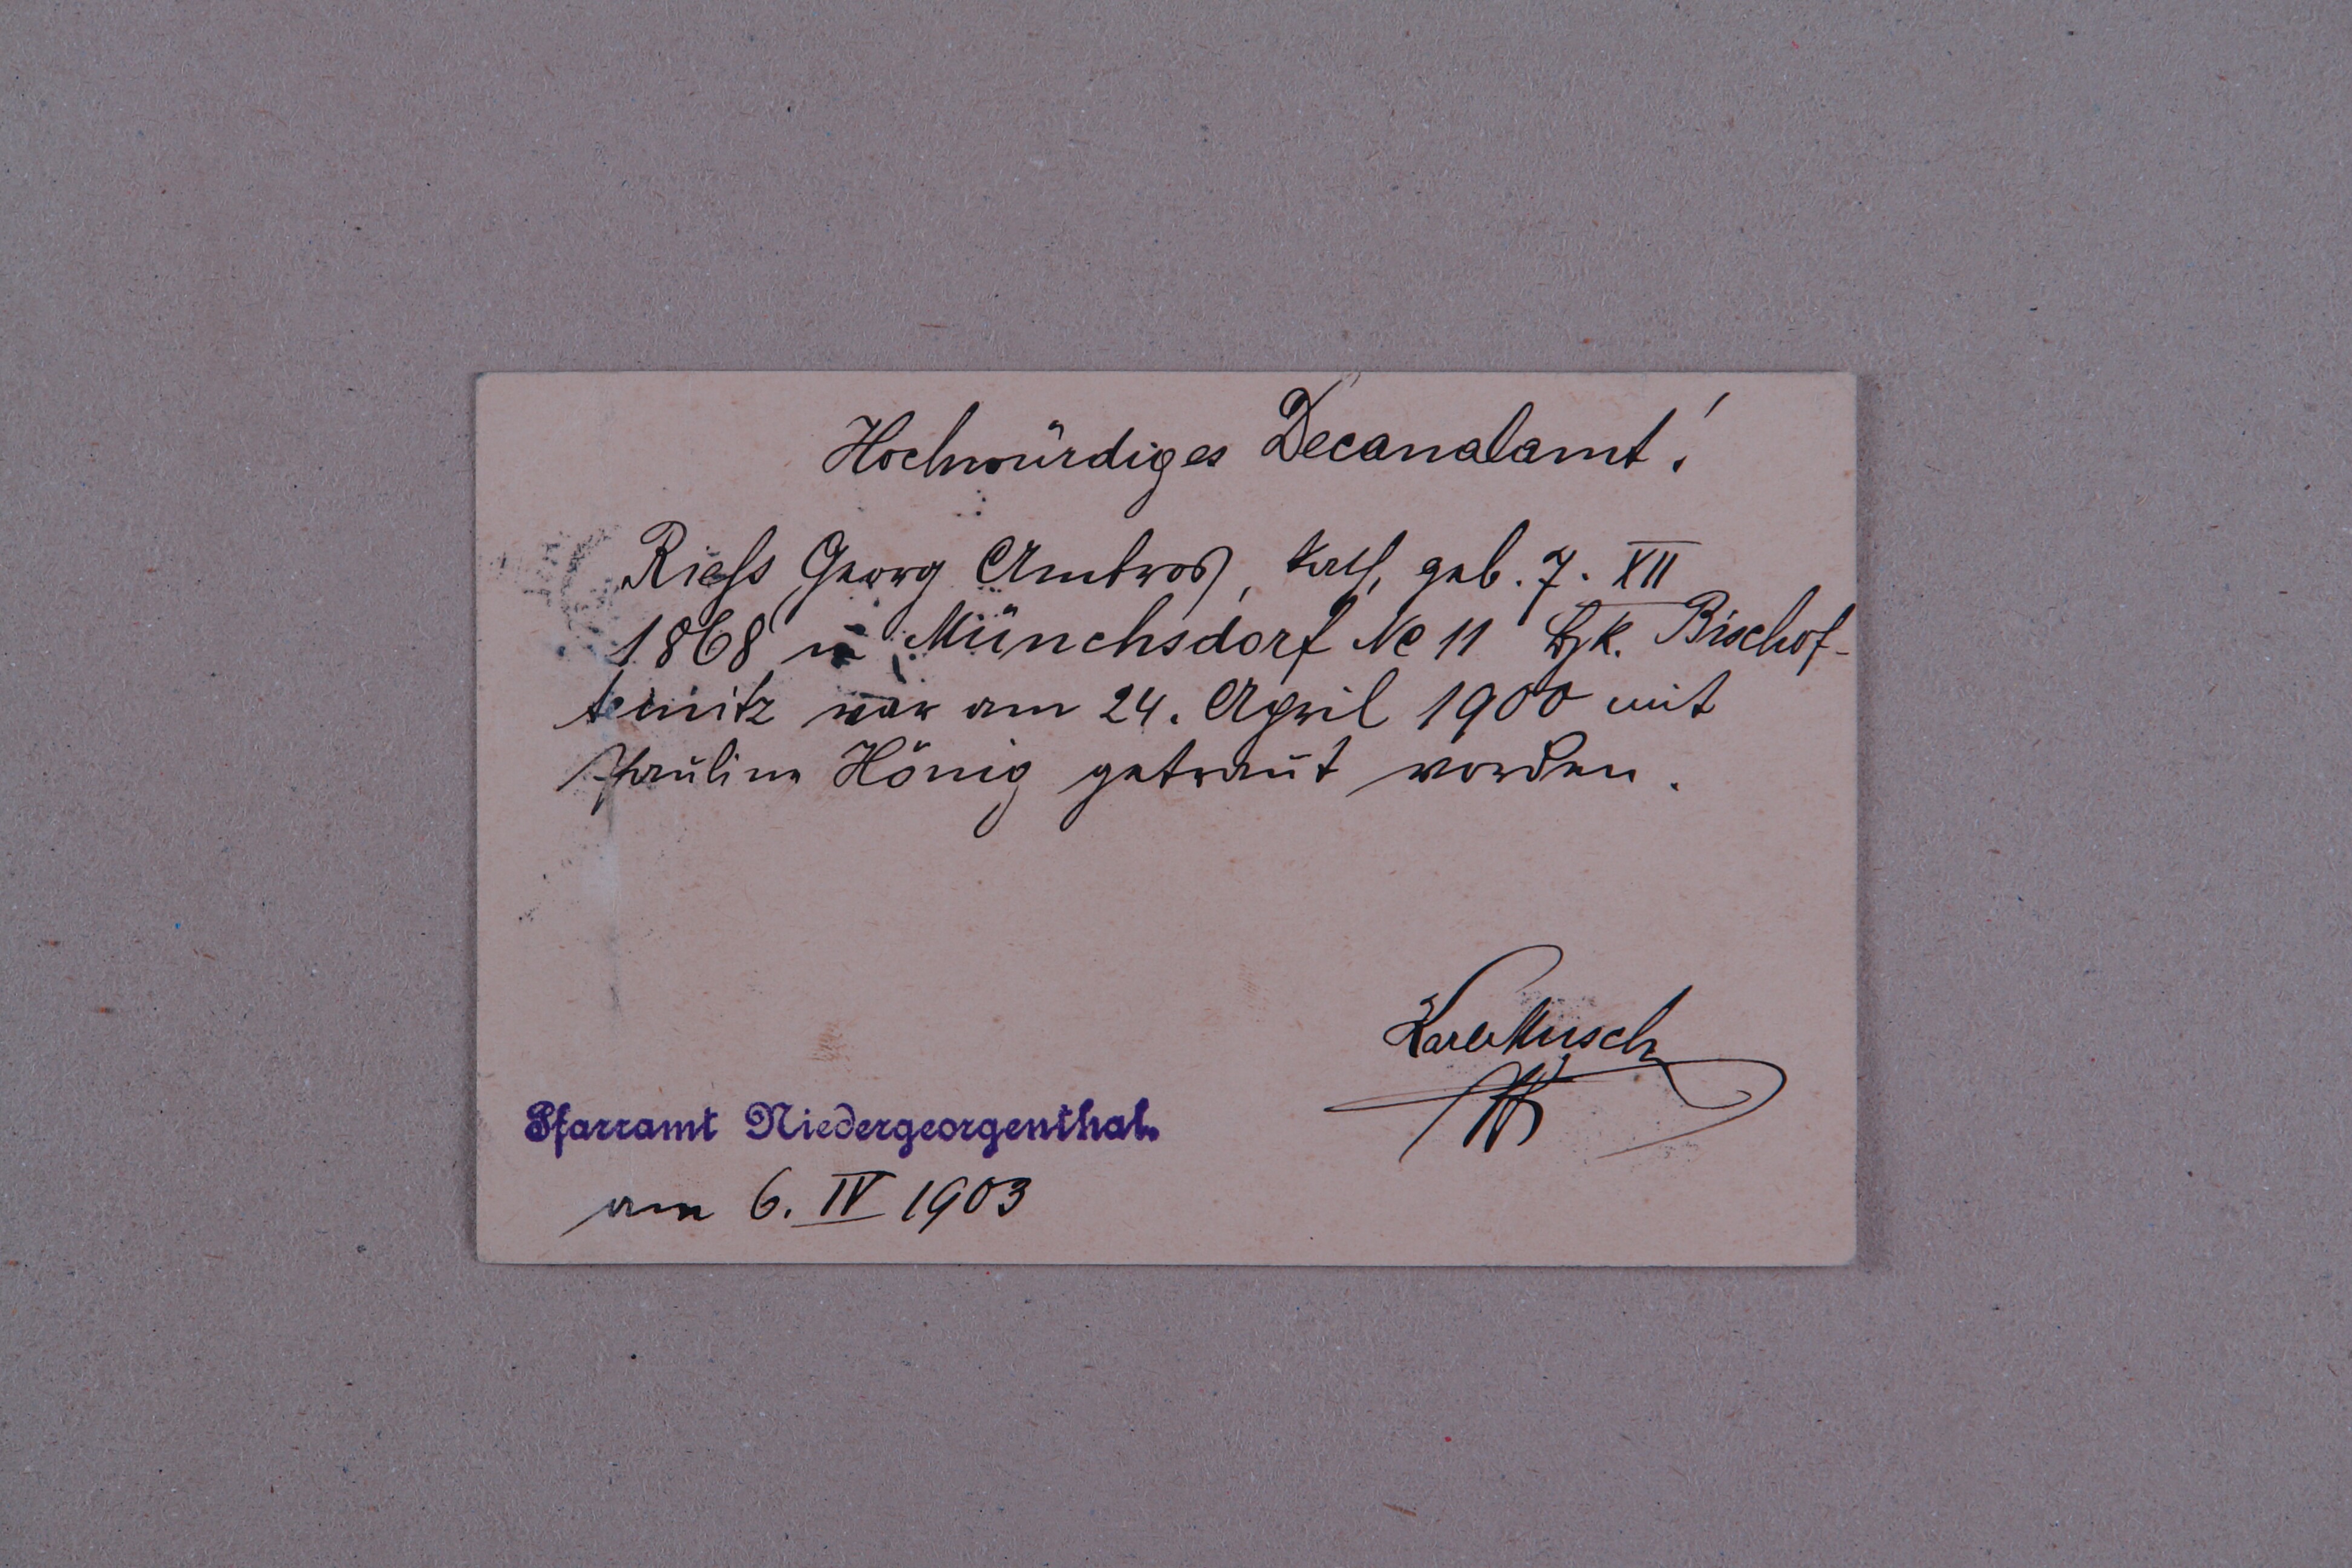 Hochwürdiges Decanalamt!
Riess Georg Ambros, kath, geb. 7. XII
1868 in Münchsdorf No 11 Bzk. Bischof-
teinitz war am 24. April 1900 mit
Paulina Hönig getraut worden.
Karl Musch
Pfarramt Niedergeorgenthal.
am 6. IV 1903